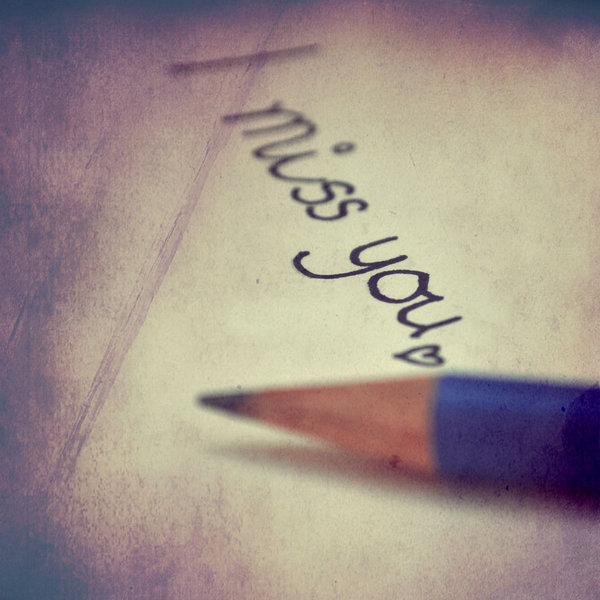 I miss you♡